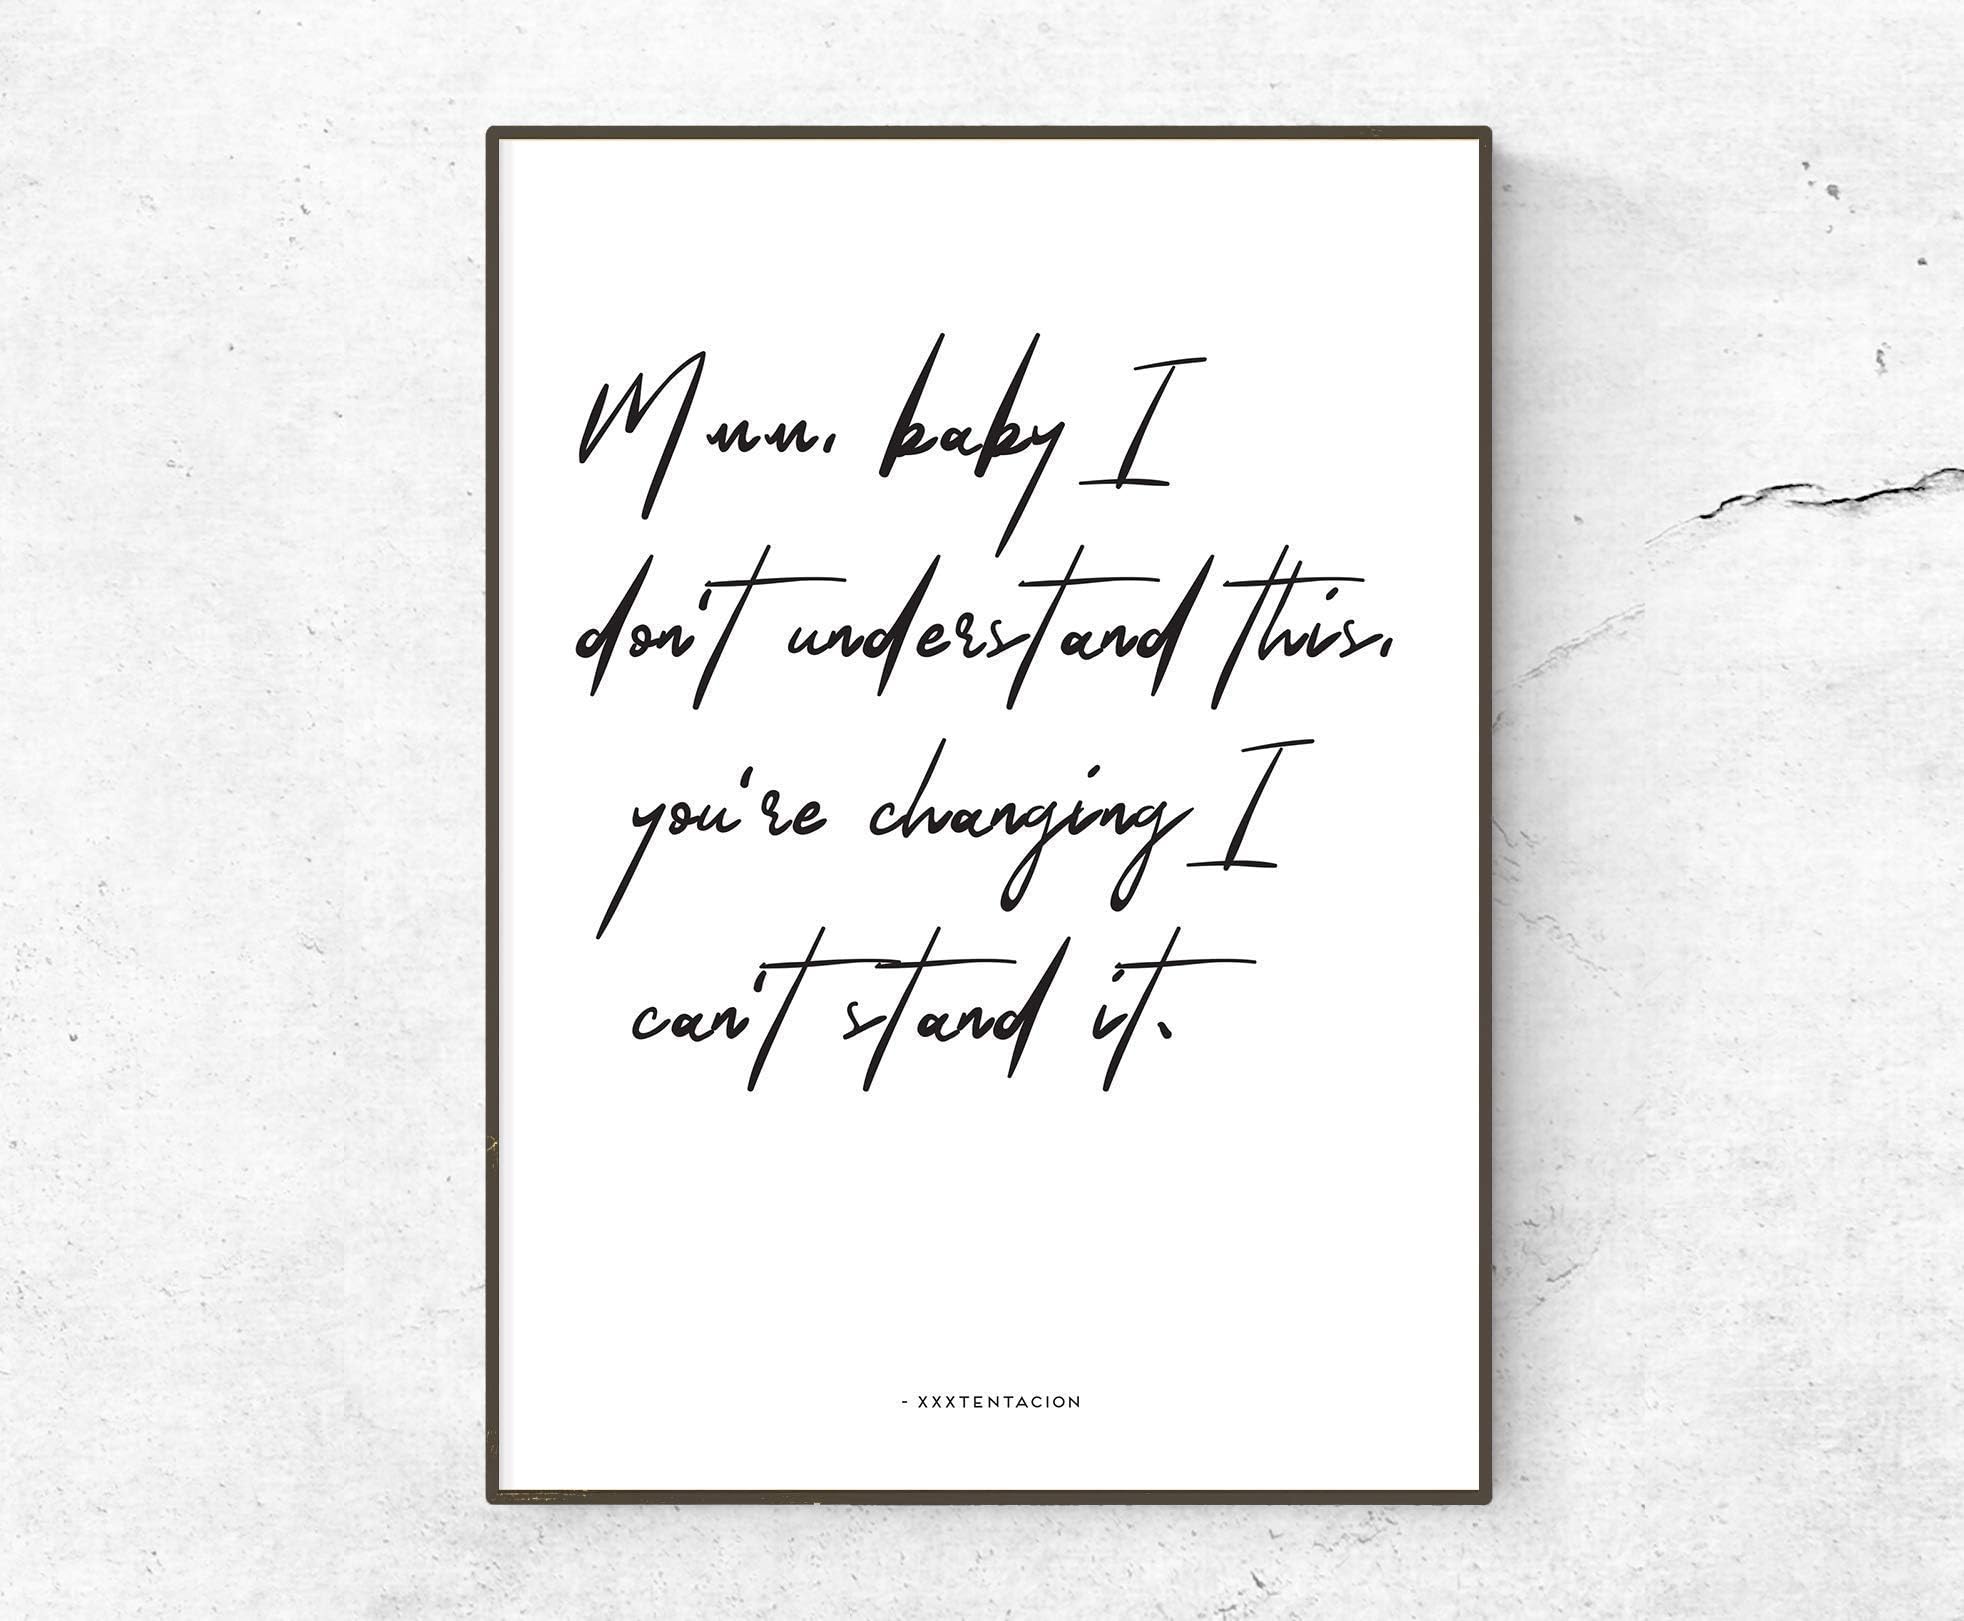 Mnn, baby I
don't understand this,
you're changing I
can't stand it.
- XXXTENTACION